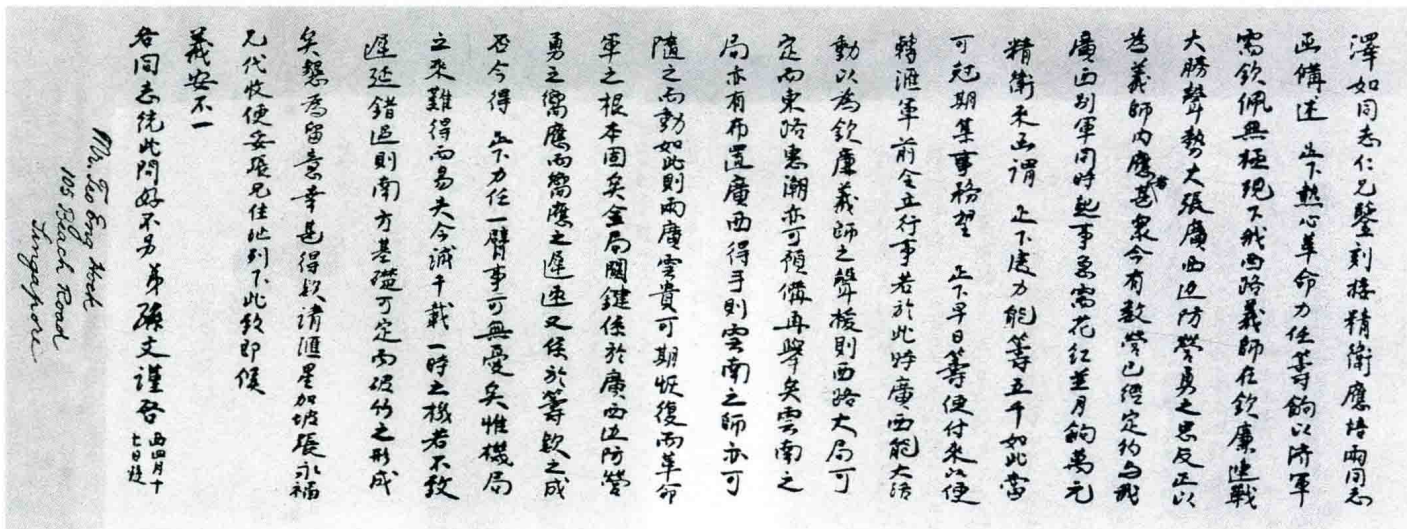 澤如同志仁兄鑒刻接精衛應培兩同志
函備述 足下熱心革命力任籌餉以濟軍
需欽佩無極現下我西路義師在欽廉連戰
大勝聲勢大張廣西邊防營勇之思反正以
為義師內應者甚衆今有數營已經定約與我
廣西別軍同時起事惟需花紅並月餉萬元
精衛來函謂 足下度力能籌五千如此當
可尅期集事務望 足下早日籌便付來以便
轉滙軍前令立行事若於此時廣西能大活
動以為欽廉義師之聲援則西路大局可
定而東路惠潮亦可預備再舉矣雲南之
局亦有布置廣西得手則雲南之師亦可
隨之而動如此則兩廣雲貴可期恢復而革命
軍之根本固矣全局關鍵係於廣西邊防營
勇之響應而響應之遲速又係於籌款之成
否今得 足下力任一臂事可無憂矣惟機局
之來難得而易失今誠千載一時之機若不致
遲延錯過則南方基礎可定而破竹之形成
矣懇為留意幸甚得款請滙星加坡張永福
兄代收便妥張兄住址列下此致即候
義安不一
各同志統此問好不另 弟孫文謹啓 西四月十七日發
Mr. Teo Eng Hock
105 Beach Road
Singapore.